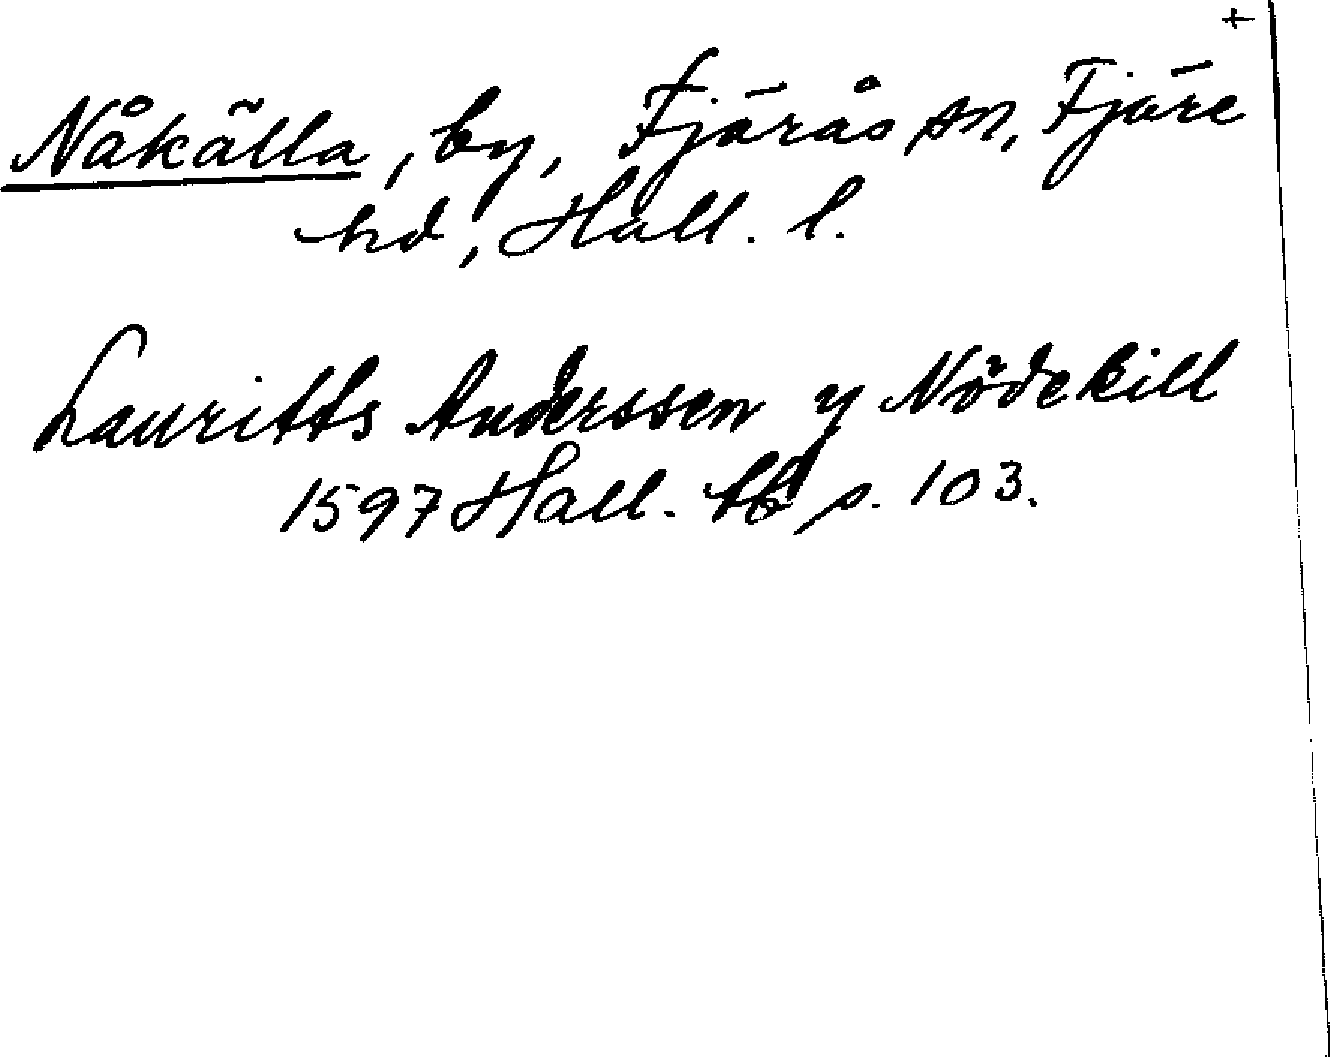 +
Nåkälla, by, Fjärås sn, Fjäre
hd, Hall. l.
Lauritts Anderssen y Nödekill
1597 Hall. lb s. 103.